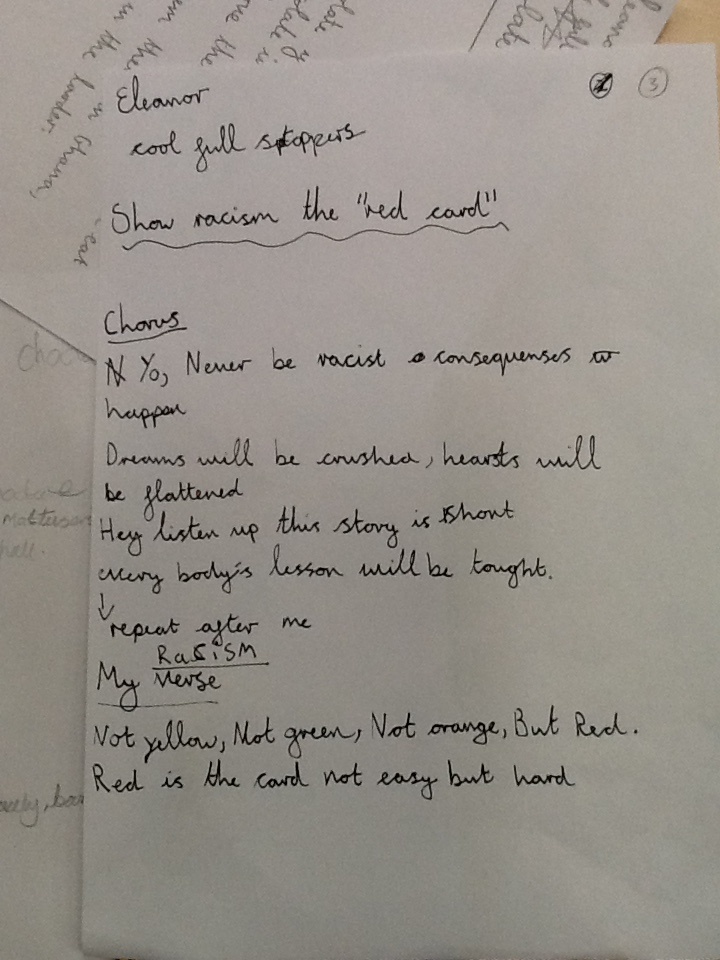 Eleanor
3
cool full stoppers
Show racism the "red card"
Chorus
Yo, Never be racist consequenses
happen
Dreams will be crushed, hearsts will
be flattened
Hey listen up this story is short
every body's lesson will be tought.
↓
repeat after me
RaSiSM
My Verse
Not yellow, Not green, Not orange, But Red.
Red is the card not easy but hard